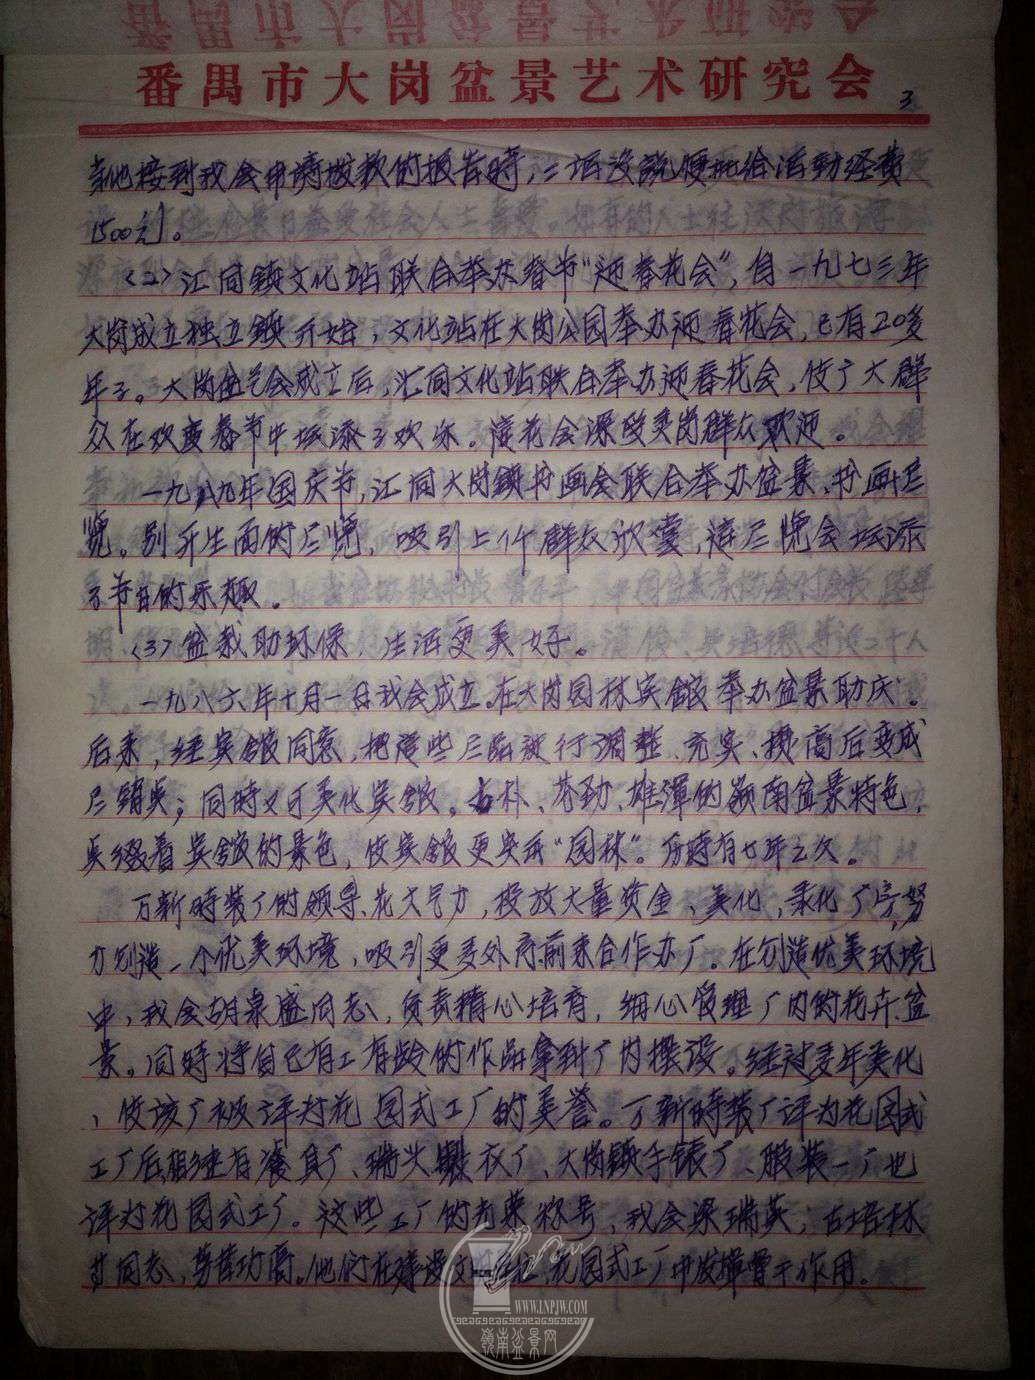 番禺市大岗盆景艺术研究会
3
当他接到我会申请拨款的报告时,二话没说便批给活动经费
1500元。
(2)汇同镇文化站联合举办春节“迎春花会”,自一九七三年
大岗成立独立镇开始,文化站在大岗公园举办迎春花会,已有20多
年了。大岗盆艺会成立后,汇同文化站联合举办迎春花会,使广大群
众在欢度春节中增添了欢乐。该花会深受大岗群众欢迎。
一九八九年国庆节,汇同大岗镇书画会联合举办盆景、书画展
览。别开生面的展览,吸引上千群众欣赏,该展览会增添
了节日的乐趣。
(3)盆栽助环保,生活更美好。
一九八六年十月一日我会成立。在大岗园林宾馆举办盆景助庆。
后来,经宾馆同意,把这些展品进行调整、充实、提高后变成
展销类;同时又可美化宾馆。古朴、苍劲、雄浑的岭南盆景特色,
点缀着宾馆的景色,使宾馆更突出“园林”。历时有七年之久。
万新时装厂的领导、花大气力,投放大量资金、美化,绿化厂房,努
力创造一个优美环境,吸引更多外商前来合作办厂。在创造优美环境
中,我会胡泉盛同志、负责精心培育,细心管理厂内的花卉、盆
景。同时将自己有上百龄的作品拿到厂内摆设。经过多年美化
,使该厂被评为花园式工厂的美誉。万新时装厂评为花园式
工厂后,相继有食厂、瑞兴制衣厂、大岗镇手袋厂、服装一厂也
评为花园式工厂。这些工厂的光荣称号,我会梁瑞英,古培林
等同志,劳苦功高。他们在建设文明单位、花园式工厂中发挥骨干作用。
WWW.LNPJW.COM
岭南盆景网